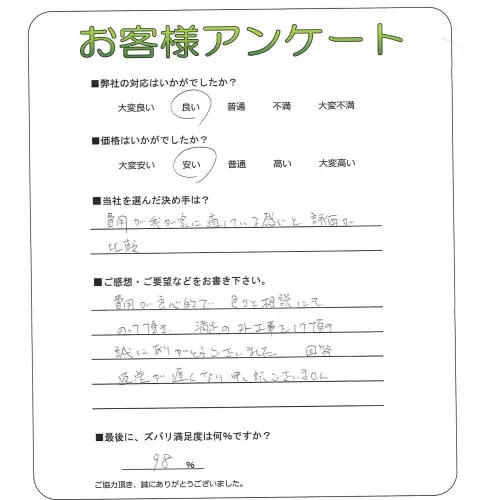 お客様アンケート
■弊社の対応はいかがでしたか?
大変良い 良い 普通 不満 大変不満
■価格はいかがでしたか?
大変安い 安い 普通 高い 大変高い
■当社を選んだ決め手は?
費用が我が家に適している感じと 評価が
比較
■ご感想・ご要望などをお書き下さい。
費用が良心的で 色々と相談にも
のって頂き、満足の 工事をして頂き
誠にありがとうございました 回答
返送が遅くなり申し訳ございません
■最後に、ズバリ満足度は何%ですか?
98 %
ご協力頂き、誠にありがとうございました。